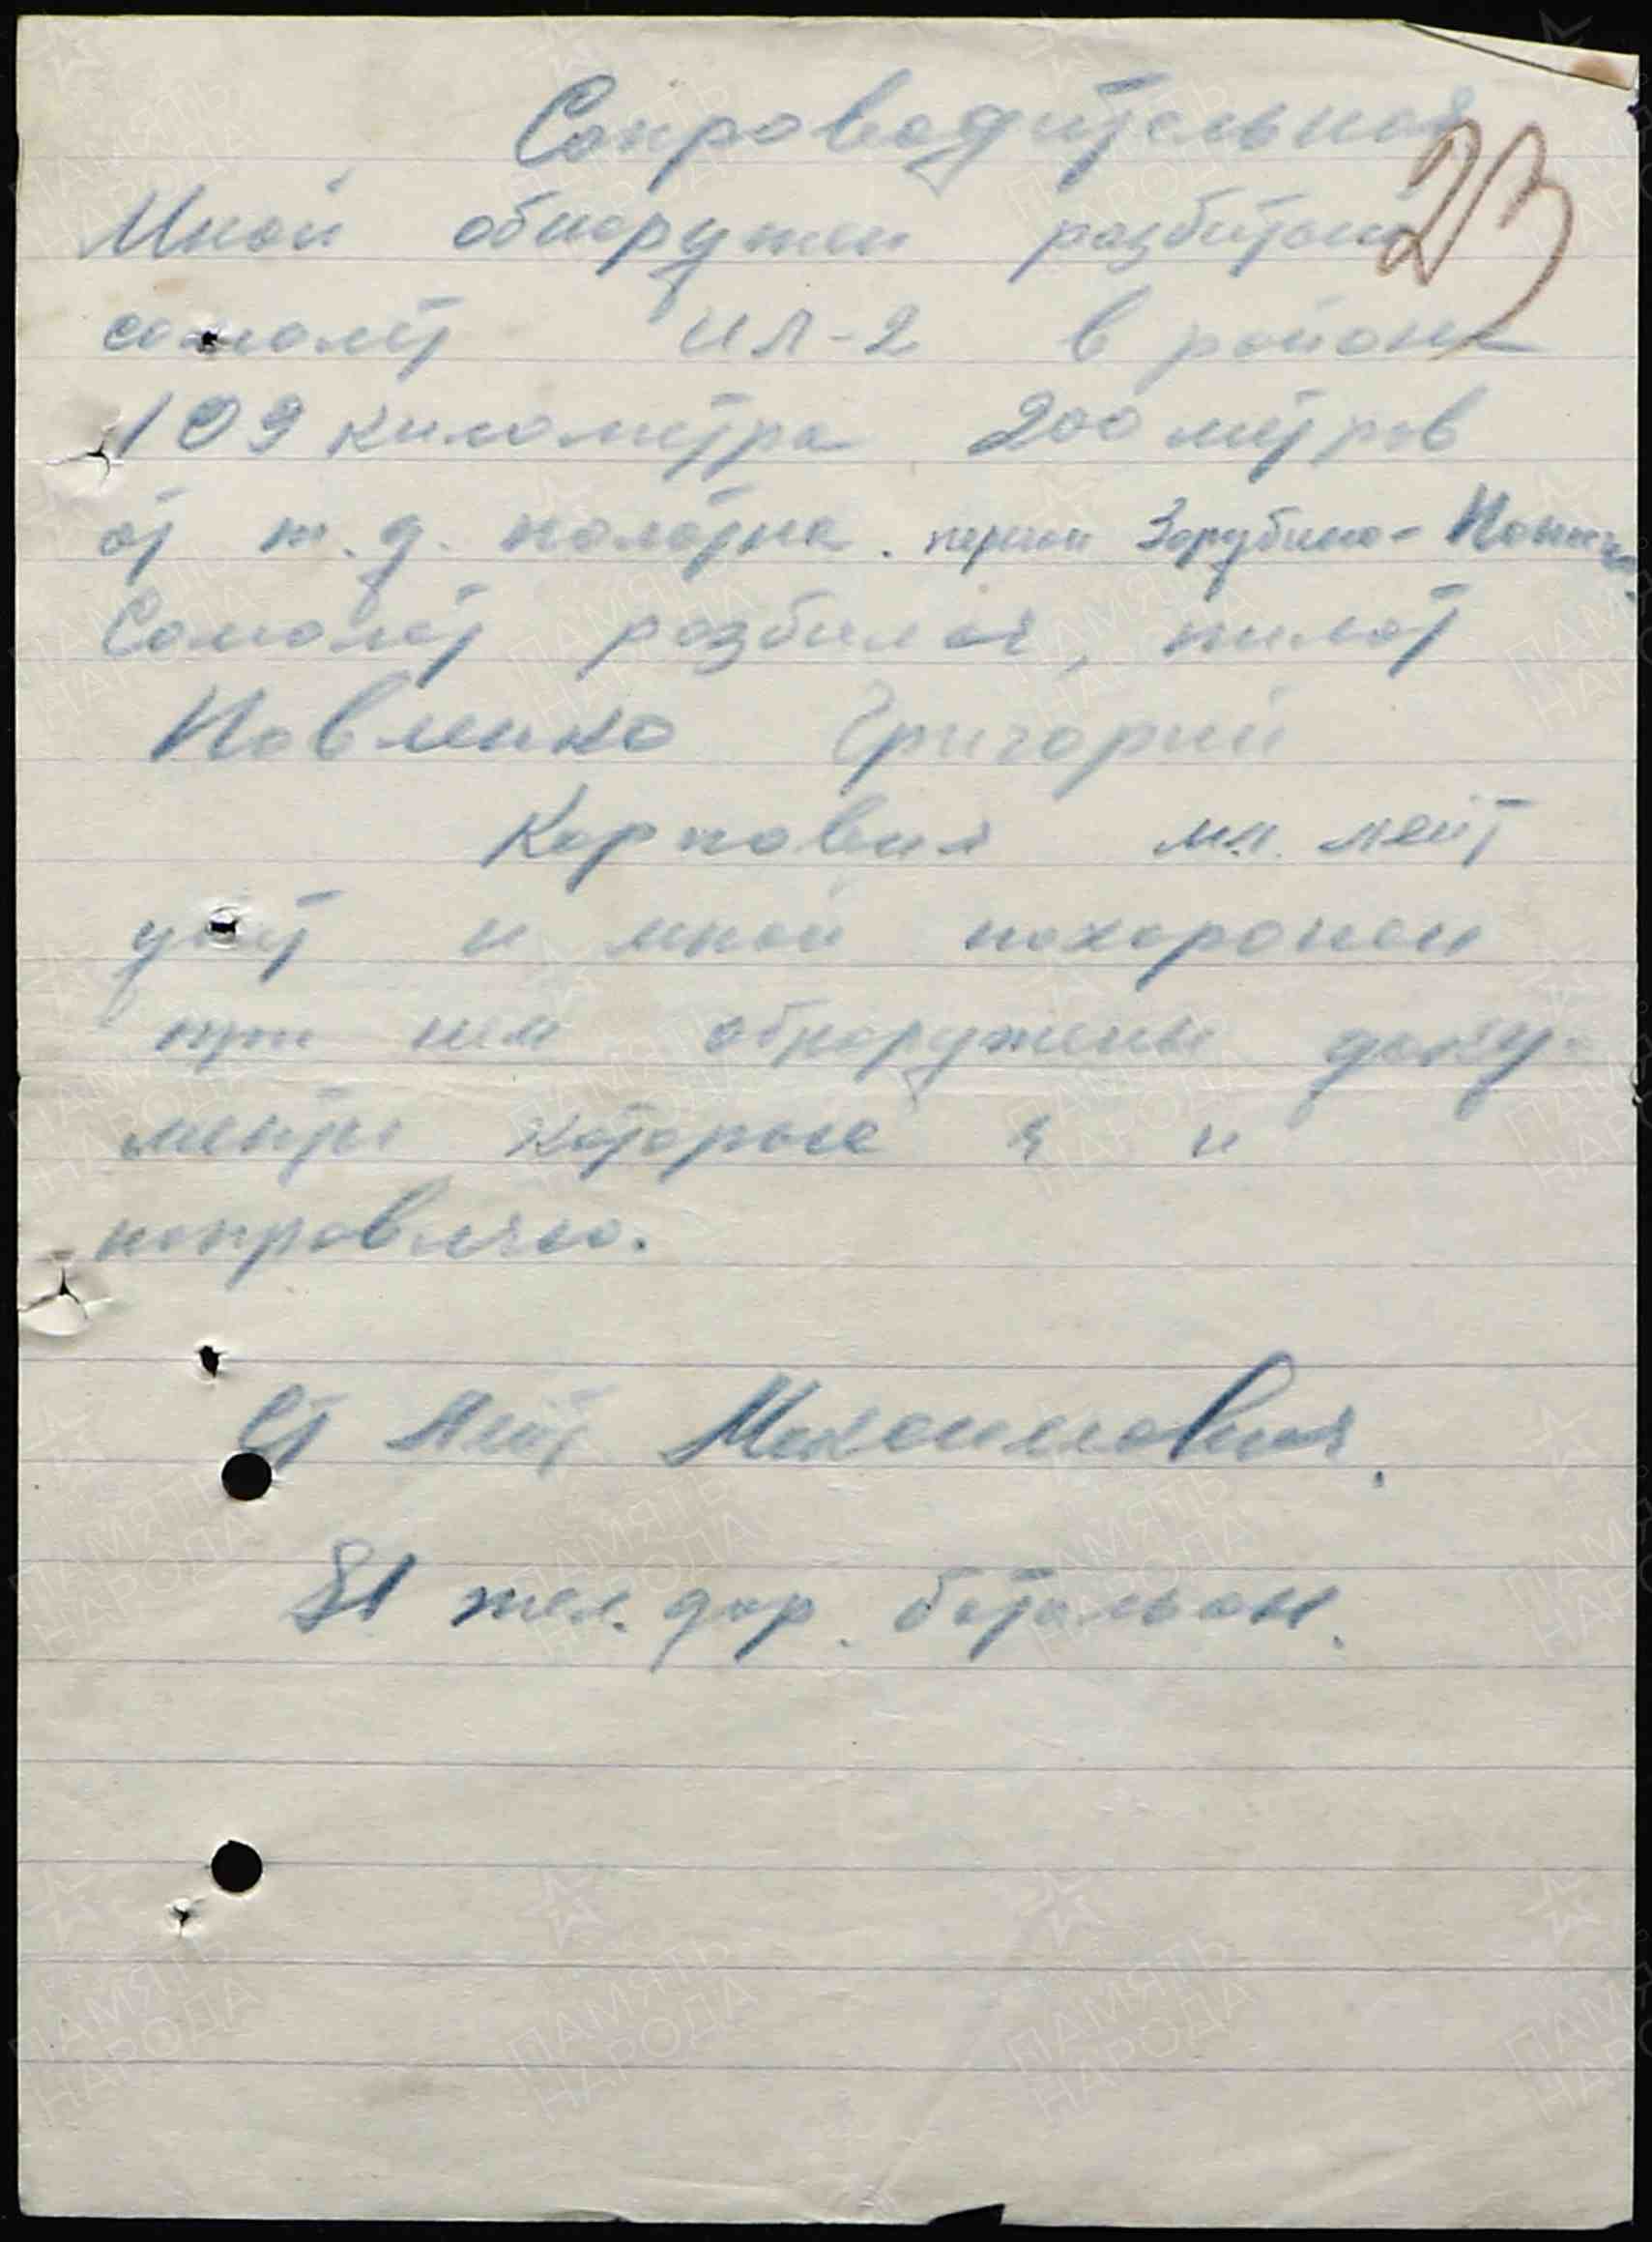 Сопроводительная
23
Мной обнаружен разбитый
самолет ил-2 в районе
109 километра 200 метров
от ж.д. полотна. Зарубино-
Самолет разбился, пилот
Павленко Григорий
Карпович мл. лейт
убит и мной похоронен
при нем обнаружены доку-
менты которые я и
направляю.
Ст Лейт Максимович.
81 жел. дор. батальон.